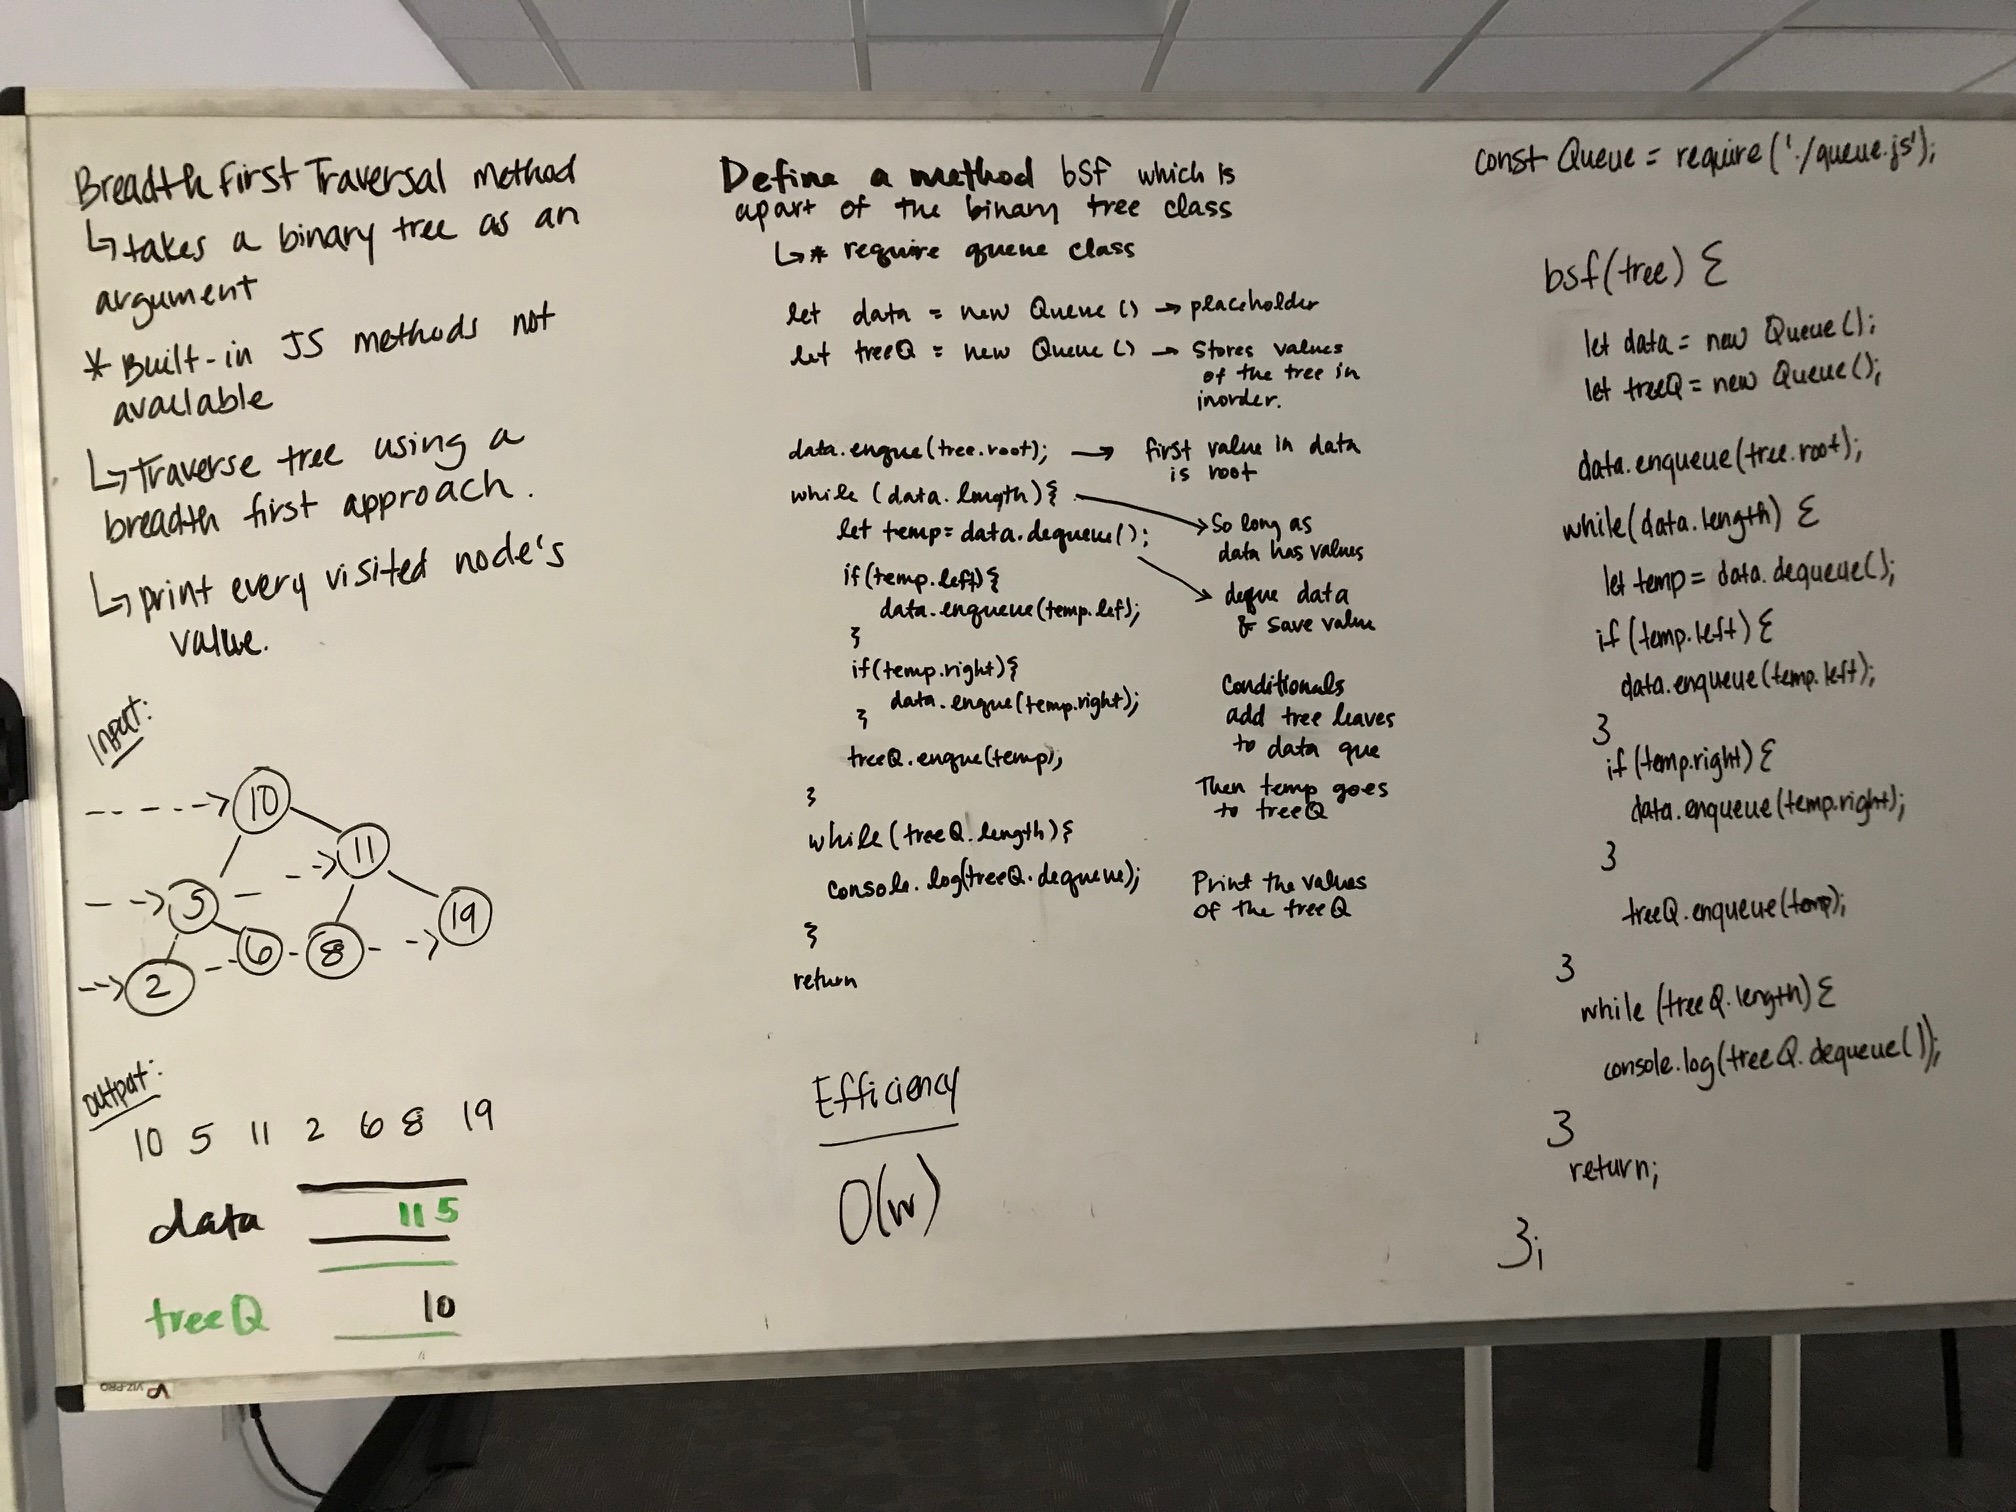 Breadth First Traversal method
↳ takes a binary tree as an
argument
* Built-in JS methods not
available
↳ Traverse tree using a
breadth first approach.
↳ print every visited node's
value.
Input:
10
11
5
19
6
8
2
output:
10 5 11 2 6 8 19
data 11 5
treeQ 10
VIZ-PRO
Define a method bsf which is
apart of the binary tree class
↳ * require queue class
let data = new Queue () → placeholder
let treeQ = new Queue () → Stores values
of the tree in
inorder.
data.enque(tree.root); → first value in data
is root
while (data.length){ → So long as
data has values
let temp = data.dequeue(); → deque data
& save value
if(temp.left){
data.enqueue(temp.lef);
}
if(temp.right){
data.enque(temp.right);
}
Conditionals
add tree leaves
to data que
treeQ.enque(temp);
Then temp goes
to treeQ
}
while (treeQ.length){
console.log(treeQ.dequeue);
Print the values
of the treeQ
}
return
Efficiency
const Queue = require('./queue.js');
bsf(tree) {
let data = new Queue();
let treeQ = new Queue();
data.enqueue(tree.root);
while(data.length) {
let temp = data.dequeue();
if (temp.left) {
data.enqueue(temp.left);
}
if (temp.right) {
data.enqueue(temp.right);
}
treeQ.enqueue(temp);
}
while (treeQ.length) {
console.log(treeQ.dequeue());
}
return;
};